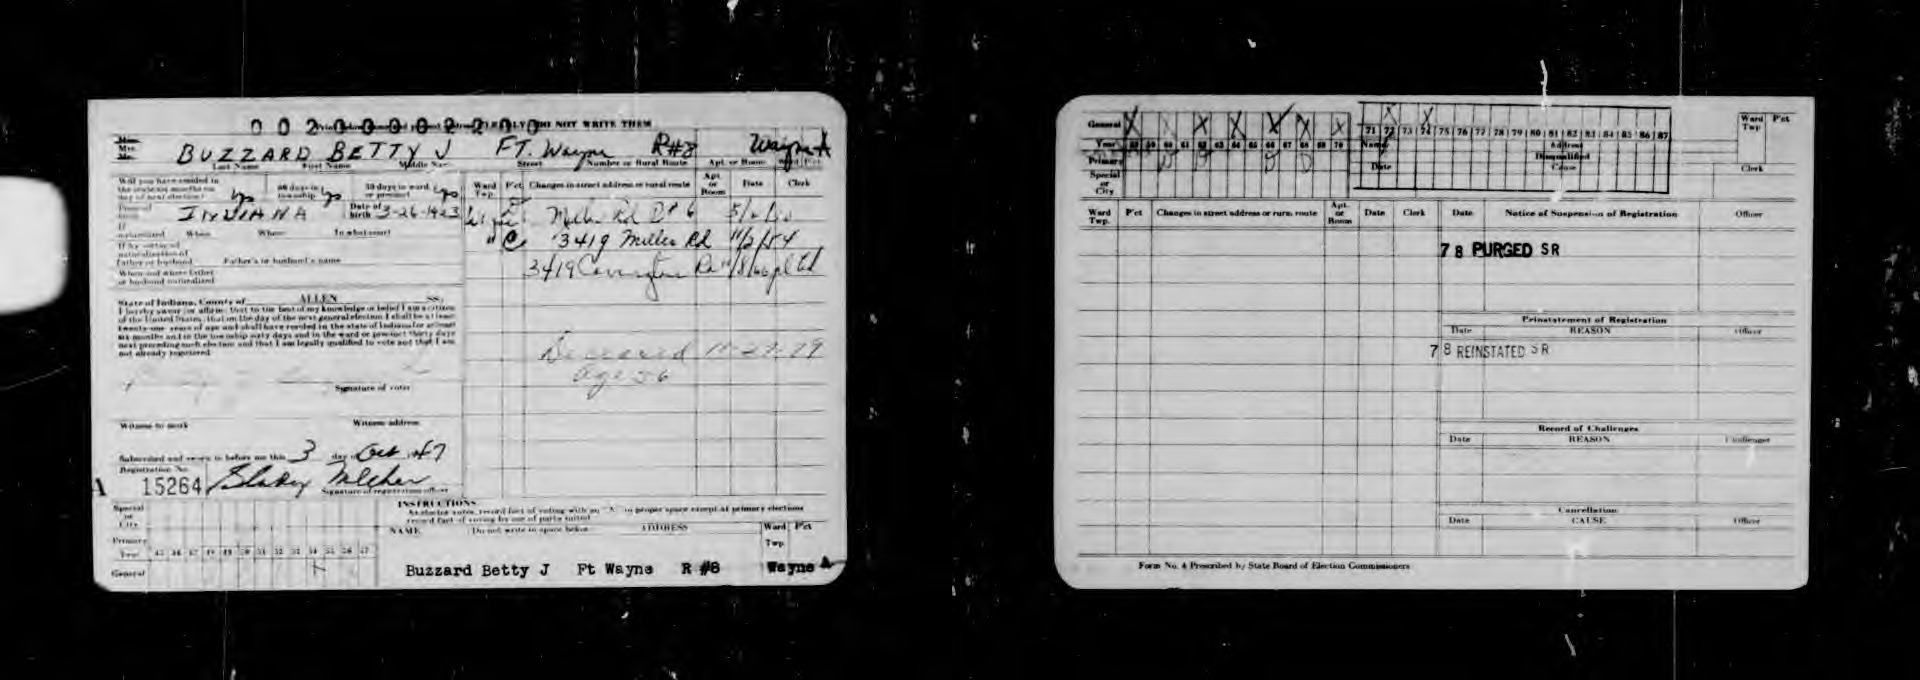 0 0 2 0 0 0 0 2 2 0 0 DO NOT WRITE THEM
Miss
Mrs.
Mr.
BUZZARD BETTY J FT. Wayne R#8 Wayne A
Last Name First Name Middle Name Street Number or Rural Route Apt. or Room Ward Pct.
Will you have resided in the state six months on day of next election? yes 60 days in township yes 30 days in ward or precinct yes
Place of birth INDIANA Date of birth 3-26-1923
If naturalized When Where In what court
If by virtue of naturalization of Father or husband Father's or husband's name
When and where Father or husband naturalized
State of Indiana, County of ALLEN SS.
I hereby swear (or affirm) that to the best of my knowledge or belief I am a citizen
of the United States; that on the day of the next general election I shall be at least
twenty-one years of age and shall have resided in the state of Indiana for at least
six months and in the township sixty days and in the ward or precinct thirty days
next preceding such election and that I am legally qualified to vote and that I am
not already registered.
Signature of voter
Witness to mark Witness address
Subscribed and sworn to before me this 3 day of Oct 1947
Registration No.
A 15264
Signature of registration officer
Special or City
Primary
Year 45 46 47 48 49 50 51 52 53 54 55 56 57
General X
Ward Twp. Pct. Changes in street address or rural route Apt. or Room Date Clerk
Miller Rd R# 6
" C 3419 Miller Rd 11/2/54
3419 Covington Rd
Deceased 10-27-79
Age 56
INSTRUCTIONS
As elector votes, record fact of voting with an "X" in proper space except at primary elections
record fact of voting by use of party initial
NAME Do not write in space below ADDRESS Ward Twp. Pct.
Buzzard Betty J Ft Wayne R #8 Wayne A
General X X X X X X X
Year 58 59 60 61 62 63 64 65 66 67 68 69 70
Primary
Special or City
X X
71 72 73 74 75 76 77 78 79 80 81 82 83 84 85 86 87
Name Address
Date Disqualified Cause Clerk
Ward Twp Pct
Ward Twp. Pct. Changes in street address or rural route Apt. or Room Date Clerk Date Notice of Suspension of Registration Officer
78 PURGED SR
Reinstatement of Registration
Date REASON Officer
78 REINSTATED SR
Record of Challenges
Date REASON Challenger
Cancellation
Date CAUSE Officer
Form No. 4 Prescribed by State Board of Election Commissioners